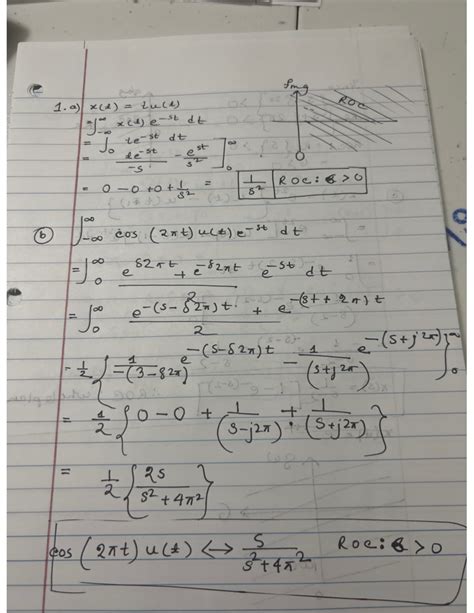 Img
ROC
1. a) x(t) = tu(t)
= ∫_{-∞}^{∞} x(t) e^{-st} dt
= ∫_0^∞ te^{-st} dt
= te^{-st}/-s - e^{-st}/s^2 ]_0^∞
= 0 - 0 + 0 + 1/s^2 = 1/s^2 | ROC: σ > 0
(b) ∫_{-∞}^{∞} cos (2πt) u(t) e^{-st} dt
= ∫_0^∞ (e^{j2πt} + e^{-j2πt})/2 e^{-st} dt
= ∫_0^∞ (e^{-(s-j2π)t} + e^{-(s+j2π)t})/2
= 1/2 { 1/-(s-j2π) e^{-(s-j2π)t} - 1/(s+j2π) e^{-(s+j2π)t} }_0^∞
= 1/2 { 0 - 0 + 1/(s-j2π) + 1/(s+j2π) }
= 1/2 { 2s/(s^2+4π^2) }
cos (2πt) u(t) ↔ s/(s^2+4π^2) ROC: σ > 0